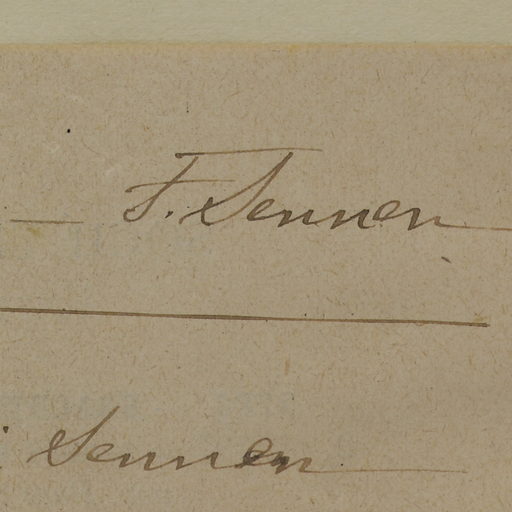 — F. Sennen
Sennen